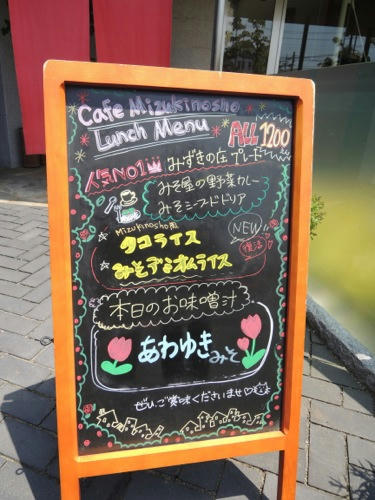 Cafe Mizukinosho
Lunch Menu
ALL 1200
人気No1 みずきの庄プレート
みそ屋の野菜カレー
みそシーフードドリア
Mizukinosho風
☆タコライス
NEW
☆みそデミオムライス
復活
本日のお味噌汁
あわゆきみそ
ぜひ、ご賞味くださいませ♡